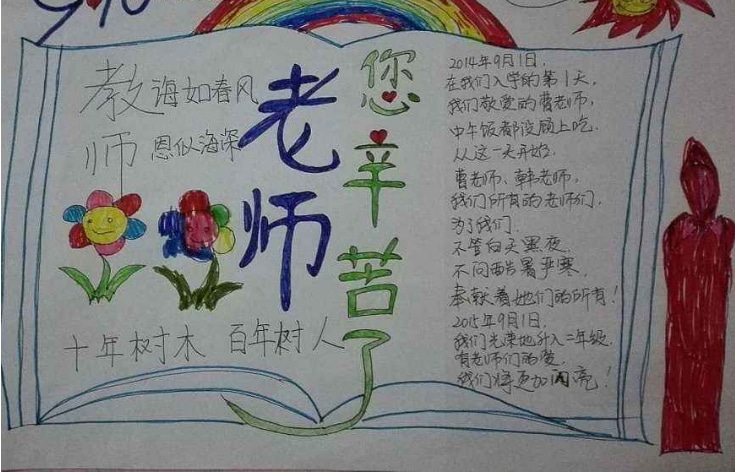 教诲如春风
师恩似海深
老师
您辛苦了
十年树木 百年树人
2014年9月1日,
在我们入学的第1天,
我们敬爱的曹老师,
中午饭都没顾上吃.
从这一天开始.
曹老师、韩老师,
我们所有的老师们,
为了我们.
不管白天黑夜.
不问酷暑严寒,
奉献着她们的所有!
2015年9月1日.
我们光荣地升入二年级.
有老师们的爱.
我们将更加闪亮!